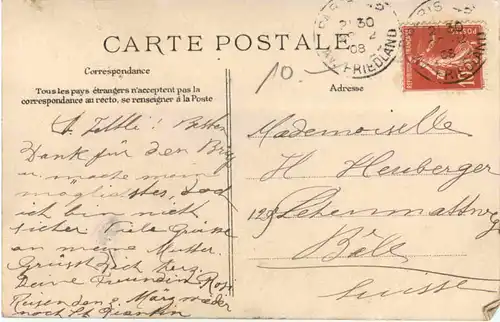 CARTE POSTALE
Correspondance
Tous les pays étrangers n'acceptent pas la
correspondance au recto, se renseigner à la Poste
Adresse
10.-
PARIS
30
08
FRIEDLAND
Besten
Dank für den Brief
u. mache mein
möglichstes, doch
ich bin nicht
sicher Viele Grüsse
an meine Mutter.
Grüsst Dich herz.
Deine Freundin Rosa
Reisen den 2. März wieder
noch St Quentin
Mademoiselle
H Heuberger
125 Lehenmattweg
Bâle
Suisse